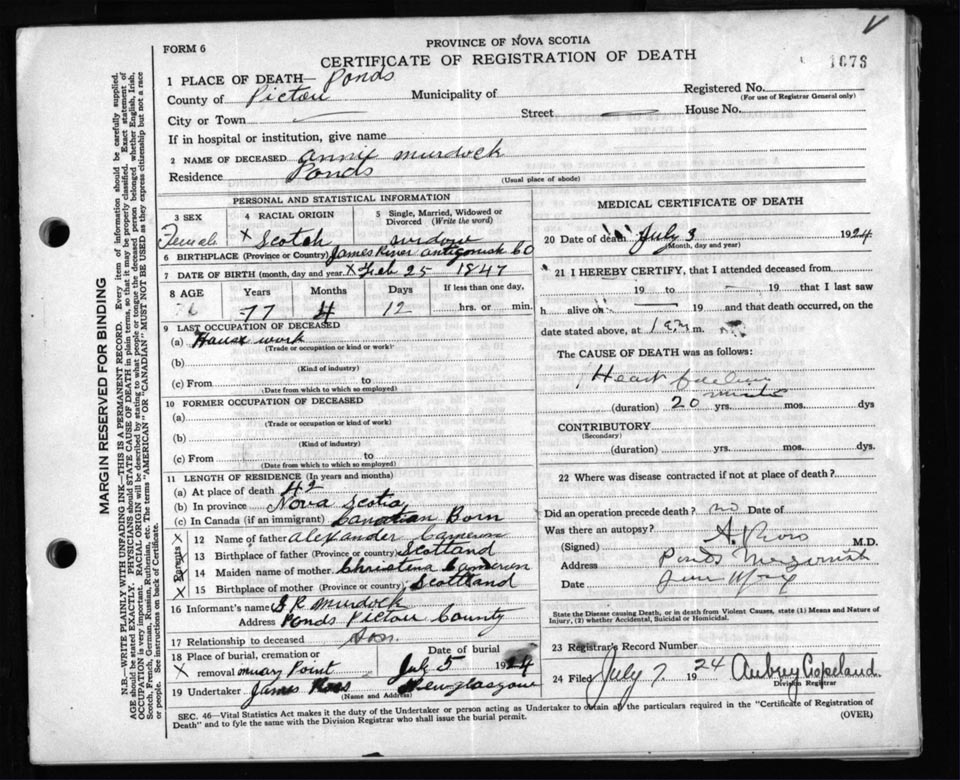 FORM 6
PROVINCE OF NOVA SCOTIA
CERTIFICATE OF REGISTRATION OF DEATH
1676
1 PLACE OF DEATH— Ponds
County of Pictou Municipality of Registered No.
(For use of Registrar General only)
City or Town Street House No.
If in hospital or institution, give name
2 NAME OF DECEASED Annie Murdock
Residence Ponds
(Usual place of abode)
PERSONAL AND STATISTICAL INFORMATION
3 SEX
Female
4 RACIAL ORIGIN
X Scotch
5 Single, Married, Widowed or Divorced (Write the word)
widow
6 BIRTHPLACE (Province or Country) James River Antigonish Co
7 DATE OF BIRTH (month, day and year) X Feb 25 1847
8 AGE Years Months Days If less than one day,
77 4 12 hrs. or min.
9 LAST OCCUPATION OF DECEASED
(a) House work
(Trade or occupation or kind or work)
(b)
(Kind of industry)
(c) From to
(Date from which to which so employed)
10 FORMER OCCUPATION OF DECEASED
(a)
(Trade or occupation or kind of work)
(b)
(Kind of industry)
(c) From to
(Date from which to which so employed)
11 LENGTH OF RESIDENCE (In years and months)
(a) At place of death 42
(b) In province Nova Scotia
(c) In Canada (if an immigrant) Canadian Born
Parents
X 12 Name of father Alexander Cameron
X 13 Birthplace of father (Province or country) Scotland
X 14 Maiden name of mother Christina Cameron
X 15 Birthplace of mother (Province or country) Scottland
16 Informant's name Murdock
Address Ponds Pictou County
17 Relationship to deceased Son
18 Place of burial, cremation or removal Point
X
Date of burial
July 5 1924
19 Undertaker James Ross New Glasgow
(Name and Address)
MEDICAL CERTIFICATE OF DEATH
20 Date of death July 3 1924
(Month, day and year)
21 I HEREBY CERTIFY, that I attended deceased from
19 to 19 that I last saw
h alive on 19 and that death occurred, on
date stated above, at 1 a.m. m.
The CAUSE OF DEATH was as follows:
Heart failure
(duration) 20 yrs. mos. dys
CONTRIBUTORY
(Secondary)
(duration) yrs. mos. dys.
22 Where was disease contracted if not at place of death?
Did an operation precede death? no Date of
Was there an autopsy?
(Signed) A. M.D.
Address Ponds
Date
State the Disease causing Death, or in death from Violent Causes, state (1) Means and Nature of
Injury, (2) whether Accidental, Suicidal or Homicidal.
23 Registrar's Record Number
24 Filed July 7 1924 Aubrey Copeland
Division Registrar
SEC. 46—Vital Statistics Act makes it the duty of the Undertaker or person acting as Undertaker to obtain all the particulars required in the "Certificate of Registration of
Death" and to fyle the same with the Division Registrar who shall issue the burial permit.
(OVER)
MARGIN RESERVED FOR BINDING
N.B.—WRITE PLAINLY WITH UNFADING INK—THIS IS A PERMANENT RECORD. Every item of information should be carefully supplied.
AGE should be stated EXACTLY. PHYSICIANS should STATE CAUSE OF DEATH in plain terms, so that it may be properly classified. Exact statement of
OCCUPATION is very important. RACIAL ORIGIN will be described by stating to what people or tongue the deceased person belonged whether English, Irish,
Scotch, French, German, Russian, Ruthenian, etc. The terms "AMERICAN" OR "CANADIAN" MUST NOT BE USED as they express citizenship but not a race
or people. See instructions on back of Certificate.